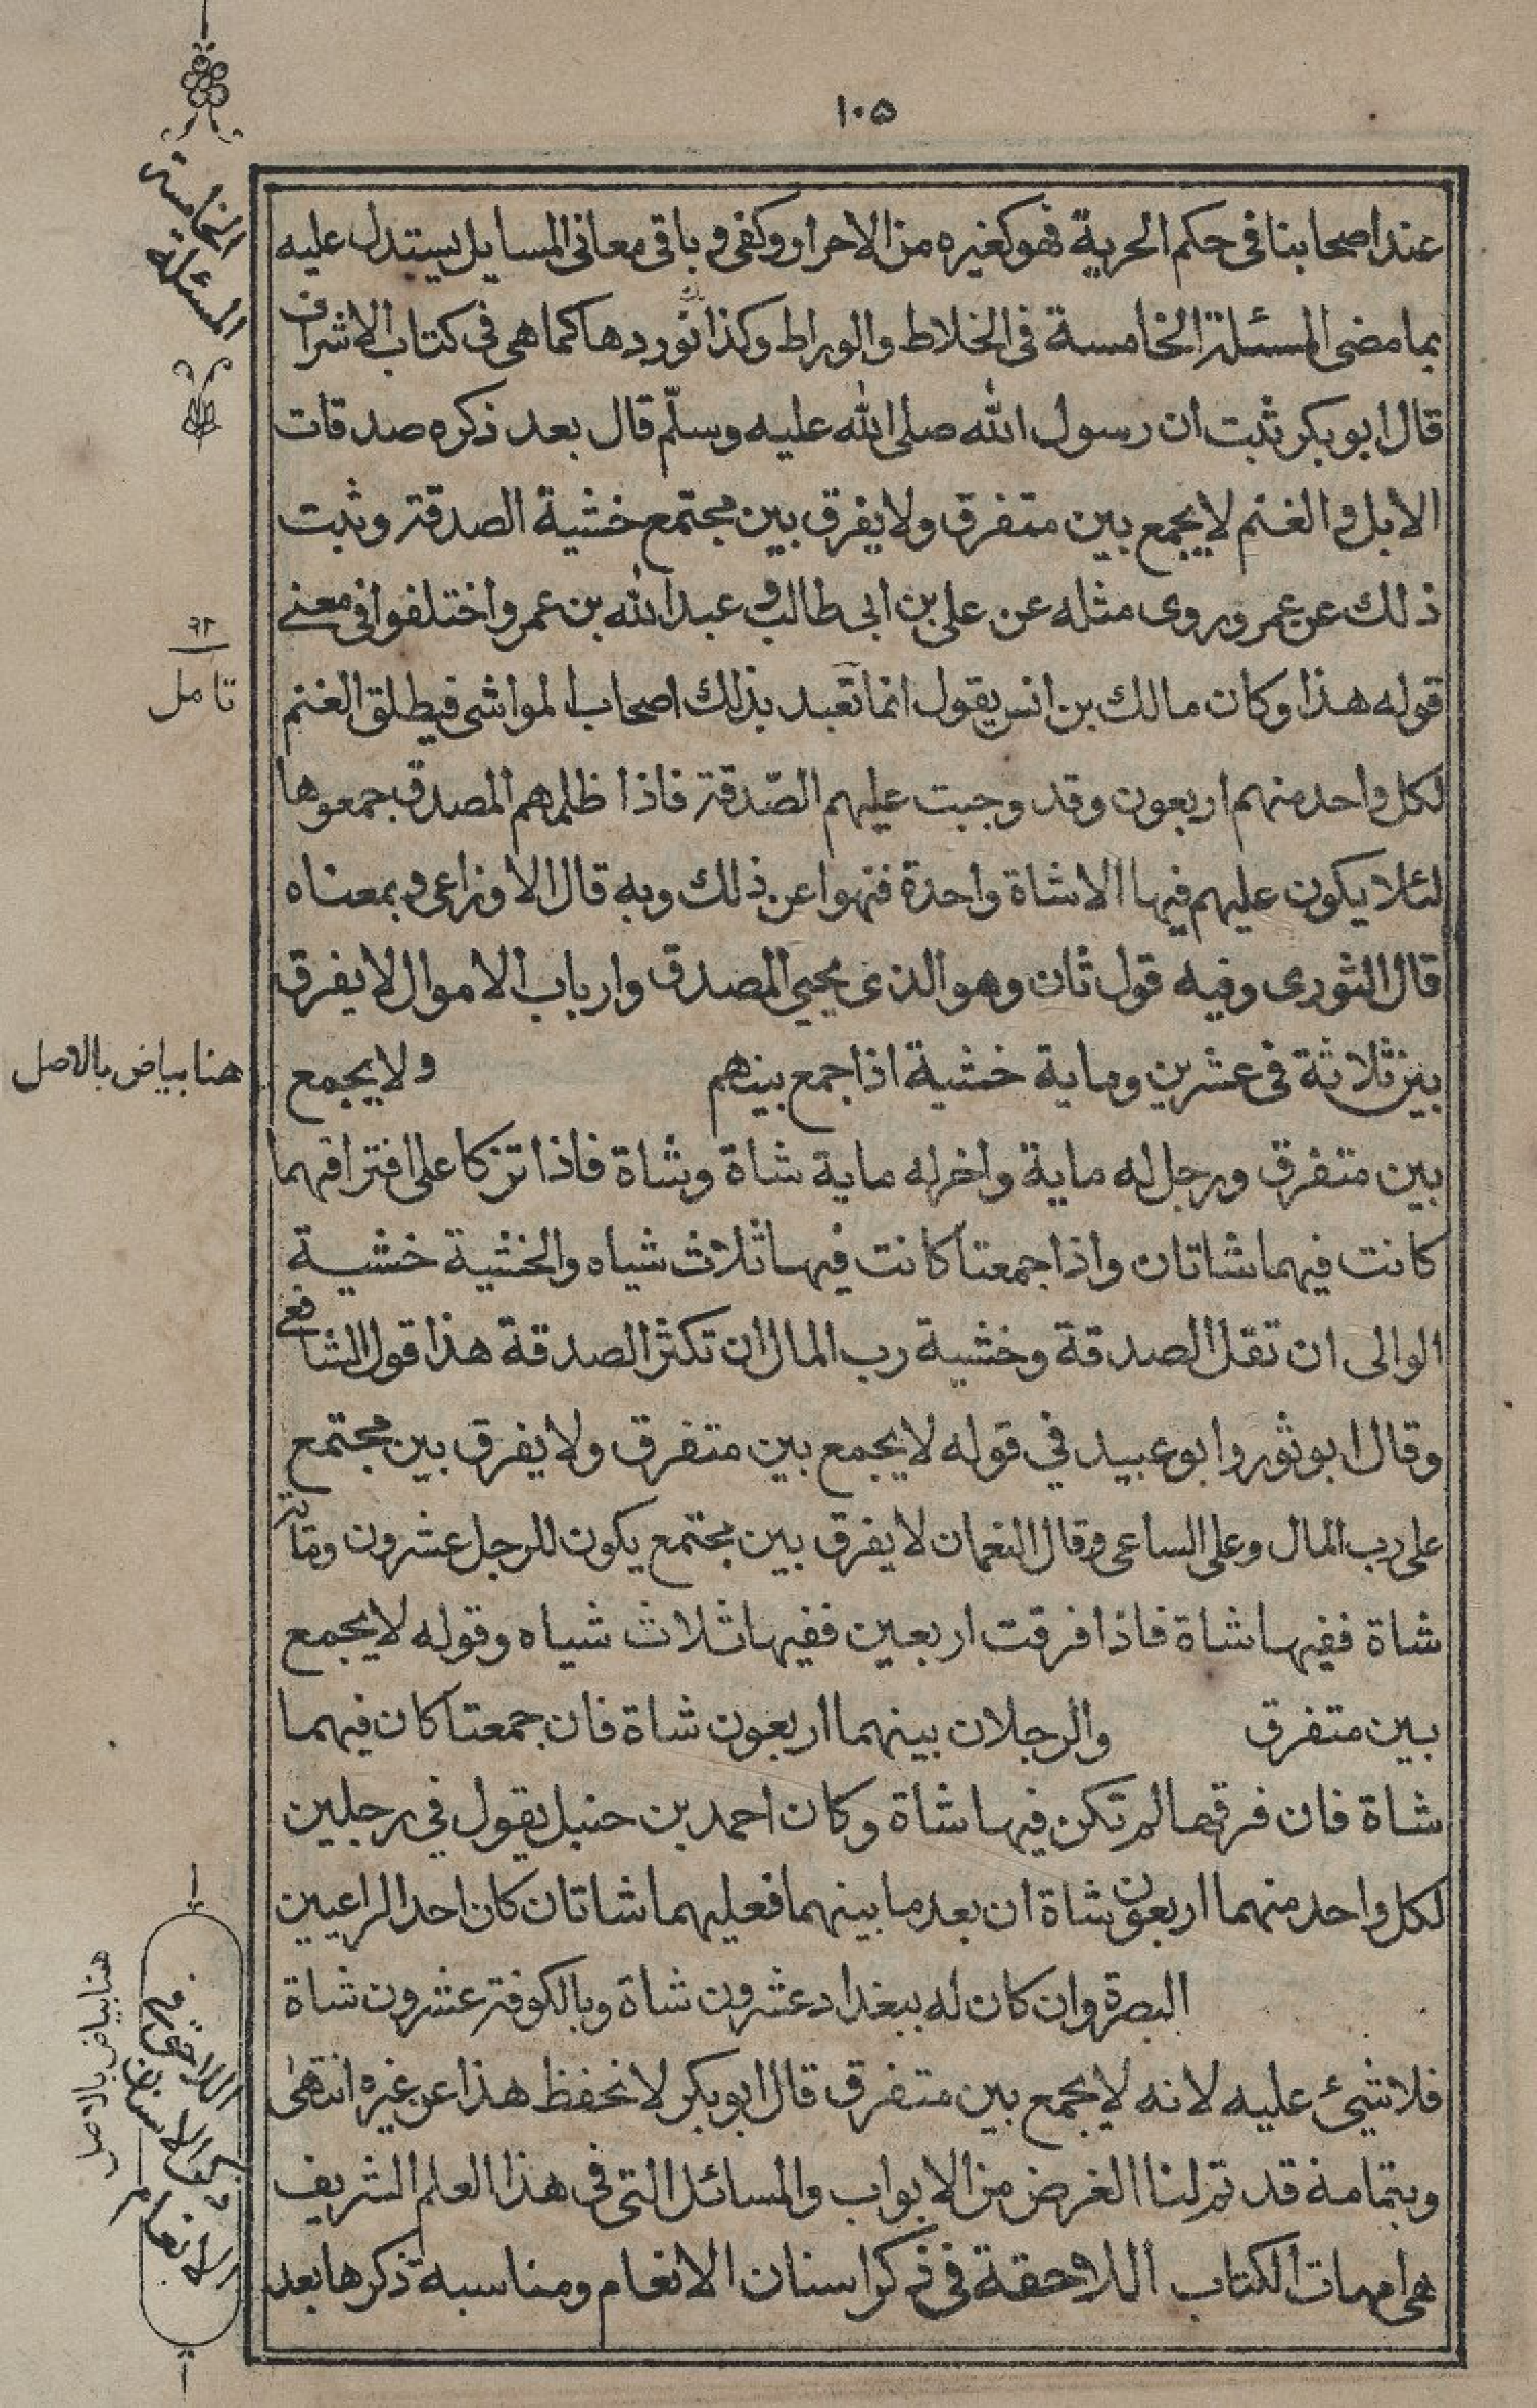 ١٠٥
المسئلة الخامسة
عند اصحابنا فى حكم الحرية فهو كغيره من الاحرار وكفى و باقى معانى المسايل يستدل عليه
بما مضى المسئلة الخامسة فى الخلاط والوراط وكذا نوردها كما هى فى كتاب الاشراف
قال ابو بكر ثبت ان رسول الله صلى الله عليه وسلّم قال بعد ذكره صدقات
الابل و الغنم لا يجمع بين متفرق ولا يفرق بين مجتمع خشية الصدقة وثبت
ذلك عن عمر وروى مثله عن على بن ابى طالب و عبد الله بن عمر واختلفوا فى معنے
قوله هذا وكان مالك بن انس يقول انما تعبد بذلك اصحاب المواشى فيطلق الغنم
تامل
لكل واحد منهم اربعون وقد وجبت عليهم الصّدقة فاذا ظلمهم المصدق جمعوها
لئلا يكون عليهم فيها الا شاة واحدة فنهوا عن ذلك وبه قال الاوزاعى و بمعناه
قال الثورى وفيه قول ثان وهو الذى يحيى المصدق وارباب الاموال لا يفرق
بين ثلاثة فى عشرين وماية خشية اذا جمع بينهم ولا يجمع
هنا بياض بالاصل
بين متفرق ورجل له ماية واخر له ماية شاة وشاة فاذا تزكا على افتراقهما
كانت فيهما شاتان واذا جمعتا كانت فيها ثلاث شياه والخشية خشية
الوالى ان تقل الصدقة وخشية رب المال ان تكثر الصدقة هذا قول الشافعے
وقال ابو ثور وابو عبيد في قوله لا يجمع بين متفرق ولا يفرق بين مجتمع
على رب المال وعلى الساعى و قال النعمان لا يفرق بين مجتمع يكون للرجل عشرون ومائة
شاة ففيها شاة فاذا فرقت اربعين ففيها ثلاث شياه وقوله لا يجمع
بين متفرق والرجلان بينهما اربعون شاة فان جمعتا كان فيهما
شاة فان فرقهما لم تكن فيها شاة وكان احمد بن حنبل يقول في رجلين
لكل واحد منهما اربعون شاة ان بعد ما بينهما فعليهما شاتان كان احد الراعيين
البصرة وان كان له ببغداد عشرون شاة وبالكوفة عشرون شاة
هنا بياض بالاصل
فلا شيئ عليه لانه لا يجمع بين متفرق قال ابو بكر لا نحفظ هذا عن غيره انتهى
وبتمامة قد تم لنا الغرض من الابواب والمسائل التى فى هذا العلم الشريف
هى امهات الكتاب اللاحقة فى ذكر اسنان الانعام ومناسبة ذكرها بعد
اللاحقة فى
ذكر الاسنان
الانعام